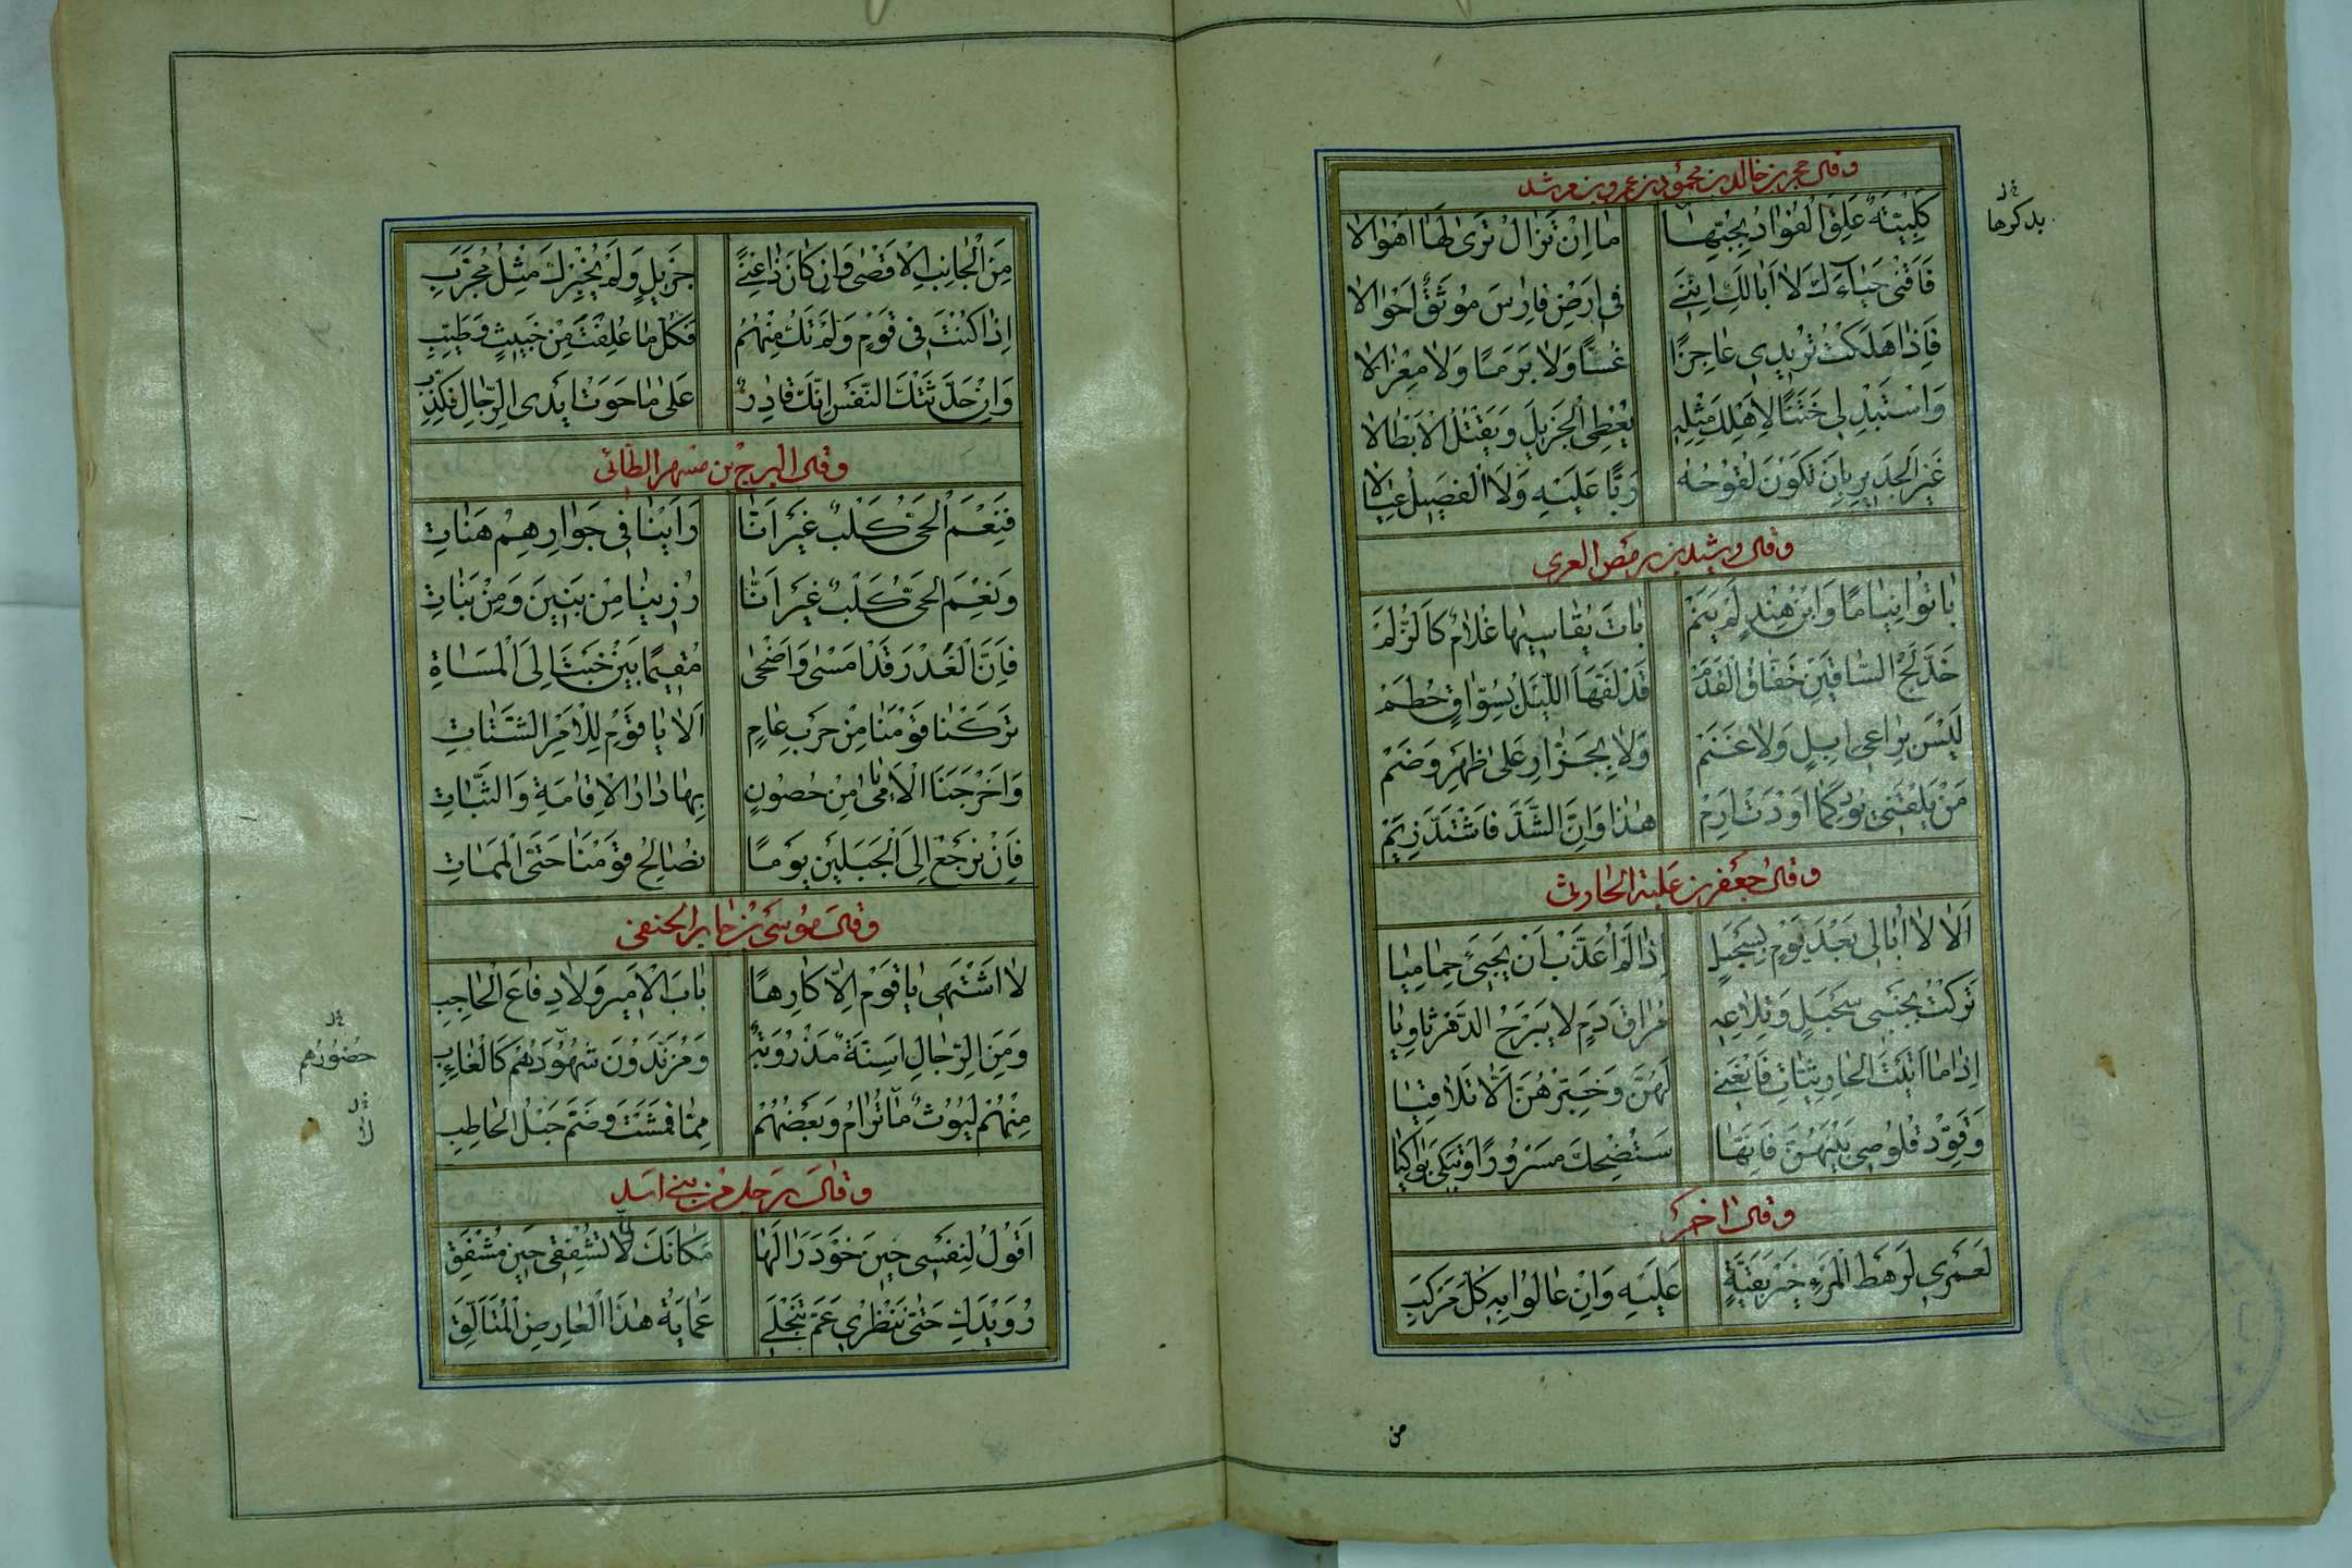 وقال حجر بن خالد بن محمود بن عمرو بن مرثد
كَلْبِيَّةٌ عَلِقَ الْفُؤَادُ بِحُبِّهَا مَا اِنْ تَزَالُ تَرَى لَهَا اَهْوَالا
فَاقْنَيْ حَيَاءَكِ لَا اَبَا لَكِ اِنَّنِي فِي اَرْضِ فَارِسَ مُوثَقٌ اَحْوَالا
فَاِذَا هَلَكْتُ تُرِيدِي عَاجِزًا غُسًّا وَلَا بَرَمًا وَلَا مِعْزَالا
وَاسْتَبْدِلِي خَتَنًا لِاَهْلِكِ مِثْلِهِ يُعْطِي الْجَزِيلَ وَيَقْتُلُ الْاَبْطَالا
غَيْرَ الْجَدِيرِ بِاَنْ تَكُونَ لَقُوحُهُ رَبًّا عَلَيْهِ وَلَا الْفَصِيلُ عِيَالا
قل
بدكرها
وقال رشيد بن رميض العنزي
بَاتُوا نِيَامًا وَابْنُ هِنْدٍ لَمْ يَنَمْ بَاتَ يُقَاسِيهَا غُلَامٌ كَالزُّلَمْ
خَدَلَّجُ السَّاقَيْنِ خَفَّاقُ الْقَدَمْ قَدْ لَفَّهَا اللَّيْلُ بِسَوَّاقٍ حُطَمْ
لَيْسَ بِرَاعِي اِبِلٍ وَلَا غَنَمْ وَلَا بِجَزَّارٍ عَلَى ظَهْرِ وَضَمْ
مَنْ يَلْقَنِي يُودِ كَمَا اَوْدَتْ اِرَمْ هٰذَا وَاِنَّ الشَّدَّ فَاشْتَدِّي زِيَمْ
وقال جعفر بن علبة الحارثي
اَلَا لَا اُبَالِي بَعْدَ يَوْمٍ بِسَحْبَلٍ اِذَا لَمْ اُعَذَّبْ اَنْ يَجِيءَ حِمَامِيَا
تَرَكْتُ بِجَنْبَيْ سَحْبَلٍ وَتِلَاعِهِ مُرَاقَ دَمٍ لَا يَبْرَحُ الدَّهْرَ ثَاوِيَا
اِذَا مَا اَتَيْتَ الْحَارِثِيَّاتِ فَانْعَنِي لَهُنَّ وَخَبِّرْهُنَّ اَلَّا تَلَاقِيَا
وَقَوِّدْ قَلُوصِي بَيْنَهُنَّ فَاِنَّهَا سَتُضْحِكُ مَسْرُورًا وَتُبْكِي بَوَاكِيَا
وقال اخر
لَعَمْرِي لَرَهْطُ الْمَرْءِ خَيْرٌ بَقِيَّةً عَلَيْهِ وَاِنْ عَالَوْا بِهِ كُلَّ مَرْكَبِ
من
مِنَ الْجَانِبِ الْاَقْصَى وَاِنْ كَانَ ذَا غِنًى جَزِيلٍ وَلَمْ يُخْبِرْكَ مِثْلُ مُجَرِّبِ
اِذَا كُنْتَ فِي قَوْمٍ وَلَمْ تَكُ مِنْهُمُ فَكُلْ مَا عُلِفْتَ مِنْ خَبِيثٍ وَطَيِّبِ
وَاِنْ حَدَّثَتْكَ النَّفْسُ اِنَّكَ قَادِرٌ عَلَى مَا حَوَتْ اَيْدِي الرِّجَالِ فَكَذِّبِ
وقال البرج بن مسهر الطائي
فَنِعْمَ الْحَيُّ كَلْبٌ غَيْرَ اَنَّا رَاَيْنَا فِي جِوَارِهِمُ هَنَاتِ
وَنِعْمَ الْحَيُّ كَلْبٌ غَيْرَ اَنَّا رُزِينَا مِنْ بَنِينَ وَمِنْ بَنَاتِ
فَاِنَّ الْغَدْرَ قَدْ اَمْسَى وَاَضْحَى مُقِيمًا بَيْنَ خَبْتَ اِلَى الْمَسَاةِ
تَرَكْنَا قَوْمَنَا مِنْ حَرْبِ عَامٍ اَلَا يَا قَوْمِ لِلْاَمْرِ الشَّتَاتِ
وَاَخْرَجْنَا الْاَيَامَى مِنْ حُصُونٍ بِهَا دَارُ الْاِقَامَةِ وَالثَّبَاتِ
فَاِنْ نَرْجِعْ اِلَى الْجَبَلَيْنِ يَوْمًا نُصَالِحُ قَوْمَنَا حَتَّى الْمَمَاتِ
وقال موسى بن جابر الحنفي
لَا اَشْتَهِي يَا قَوْمِ اِلَّا كَارِهًا بَابَ الْاَمِيرِ وَلَا دِفَاعَ الْحَاجِبِ
وَمِنَ الرِّجَالِ اَسِنَّةٌ مَذْرُوبَةٌ وَمُزَنَّدُونَ شُهُودُهُمْ كَالْغَائِبِ
مِنْهُمْ لُيُوثٌ مَا تُرَامُ وَبَعْضُهُمْ مِمَّا قَمَشْتَ وَضَمَّ حَبْلُ الْحَاطِبِ
قل
حُضُورُهُم
قل
لا
وقال رجل من بني اسد
اَقُولُ لِنَفْسِي حِينَ خَوَّدَ رَالُهَا مَكَانَكِ لَا تُشْفِقِي حِينَ مُشْفَقِ
رُوَيْدَكِ حَتَّى تَنْظُرِي عَمَّ تَنْجَلِي عَمَايَةُ هٰذَا الْعَارِضِ الْمُتَاَلِّقِ